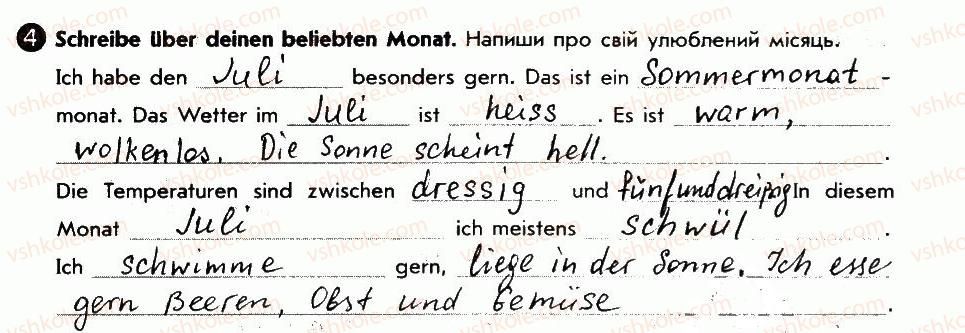 4 Schreibe über deinen beliebten Monat. Напиши про свій улюблений місяць.
Ich habe den Juli besonders gern. Das ist ein Sommermonat -
monat. Das Wetter im Juli ist heiss . Es ist warm,
wolkenlos. Die Sonne scheint hell. .
Die Temperaturen sind zwischen dressig und fünfunddreißig In diesem
Monat Juli ich meistens schwül .
Ich schwimme gern, liege in der Sonne. Ich esse
gern Beeren, Obst und Gemüse .